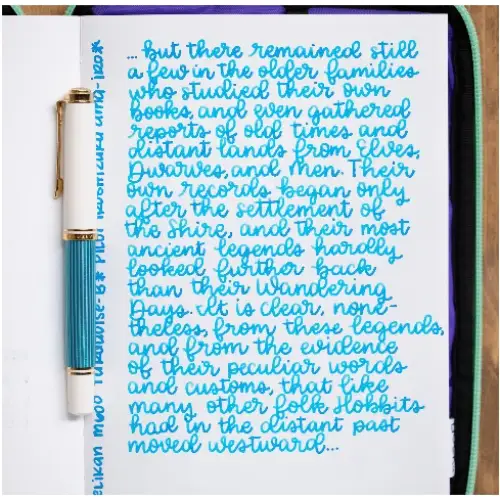 ... but there remained still
a few in the older families
who studied their own
books, and even gathered
reports of old times and
distant lands from Elves,
Dwarves, and Men. Their
own records began only
after the settlement of
the Shire, and their most
ancient legends hardly
looked further back
than their Wandering
Days. It is clear, none-
theless, from these legends,
and from the evidence
of their peculiar words
and customs, that like
many other folk Hobbits
had in the distant past
moved westward...
elikan m600 Turquoise-B* Pilot Iroshizuku ama-iro*